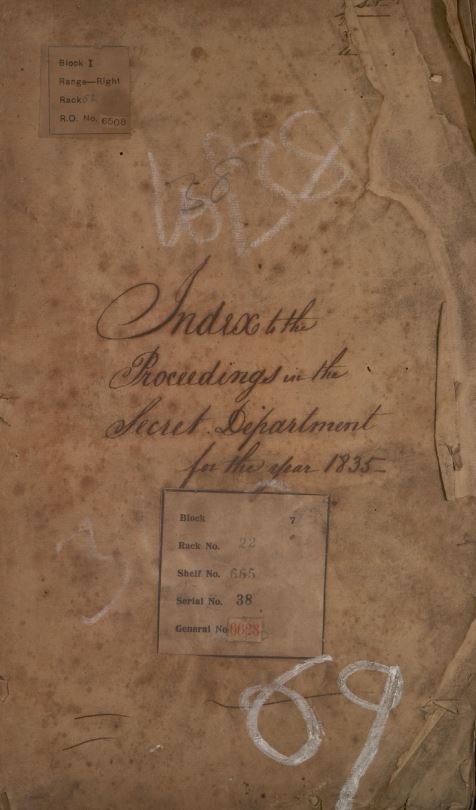 Block I
Range—Right
Rack 52
R.O. No. 6508
58
Index to the
Proceedings in the
Secret Department
for the year 1835
Block 7
Rack No. 22
Shelf No. 665
Serial No. 38
General No 6628
69